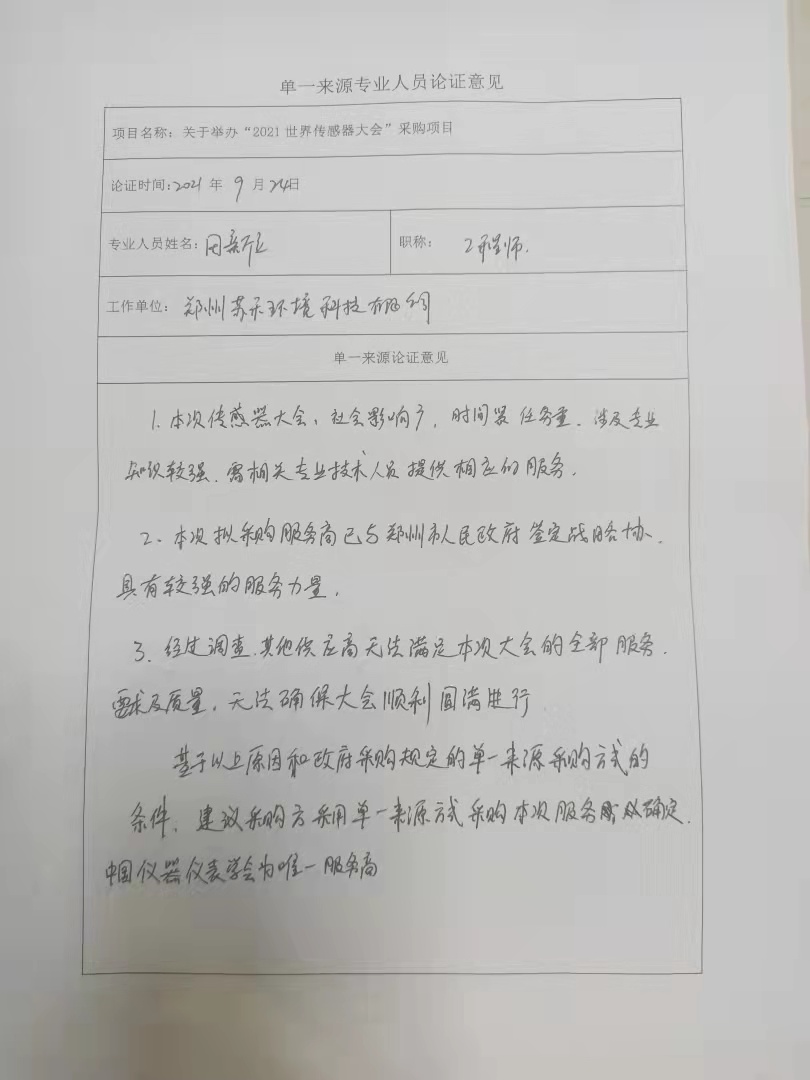 单一来源专业人员论证意见
项目名称：关于举办“2021世界传感器大会”采购项目
论证时间：2021年9月24日
专业人员姓名：
职称：工程师.
工作单位：郑州苏禾环境科技有限公司
单一来源论证意见
1. 本次传感器大会，社会影响广，时间紧 任务重. 涉及专业
知识较强. 需相关专业技术人员提供相应的服务.
2、本次拟采购服务商已与郑州市人民政府签定战略协.
具有较强的服务力量.
3. 经过调查.其他供应商无法满足本次大会的全部服务.
需求及质量. 无法确保大会顺利圆满进行
基于以上原因和政府采购规定的单一来源采购方式的
条件. 建议采购方采用单一来源方式采购本次服务 确定.
中国仪器仪表学会为唯一服务商